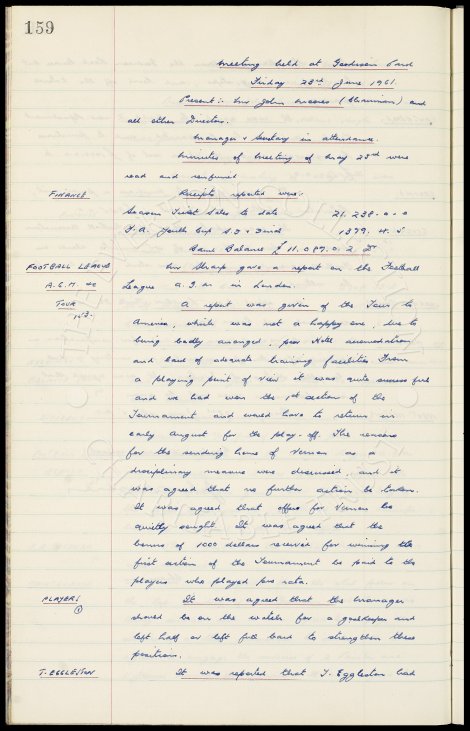 159
Meeting held at Goodison Park
Friday 23rd June 1961.
Present:- Mr John Moores (Chairman) and
all other Directors.
Manager & Secretary in attendance.
Minutes of meeting of May 23rd were
read and confirmed
FINANCE
Receipts reported were:
Season Ticket Sales to date 21. 238. 0. 0
F.A. Youth Cup 1379. 4. 5
Bank Balance £ 11. 087. 0. 2
FOOTBALL LEAGUE
A.G.M. &c
Mr Sharp gave a report on the Football
League a.g.m in London.
TOUR
A report was given of the Tour to
America, which was not a happy one, due to
being badly arranged, poor Hotel accomodation
and lack of adequate training facilities From
a playing point of view it was quite successful
and we had won the 1st section of the
Tournament and would have to return in
early August for the play-off. The reasons
for the sending home of Vernon as a
disciplinary measure was discussed, and it
was agreed that no further action be taken.
It was agreed that offers for Vernon be
quietly sought. It was agreed that the
bonus of 1000 dollars received for winning the
first section of the Tournament be paid to the
players who played pro rata.
PLAYERS
①
It was agreed that the manager
should be on the watch for a goalkeeper and
left half or left full back to strengthen these
positions.
T. EGGLESTON
It was reported that T. Eggleston had